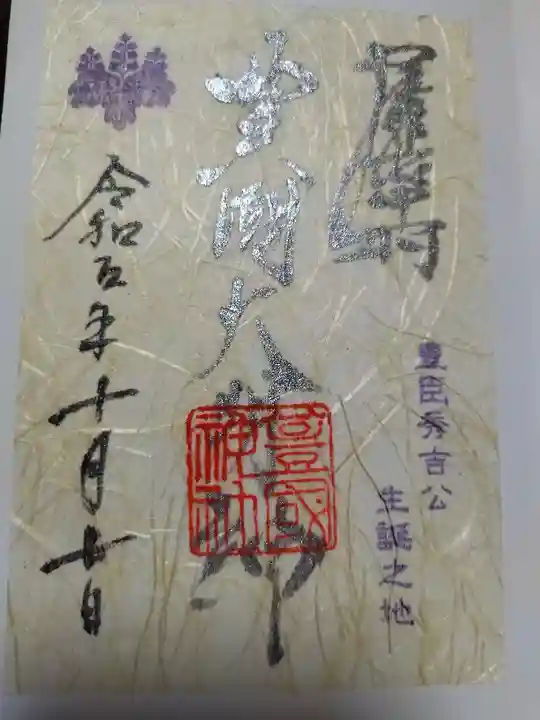 尾張中村
豊臣秀吉公
生誕之地
豊國大明神
豊國神社
令和五年十月十日